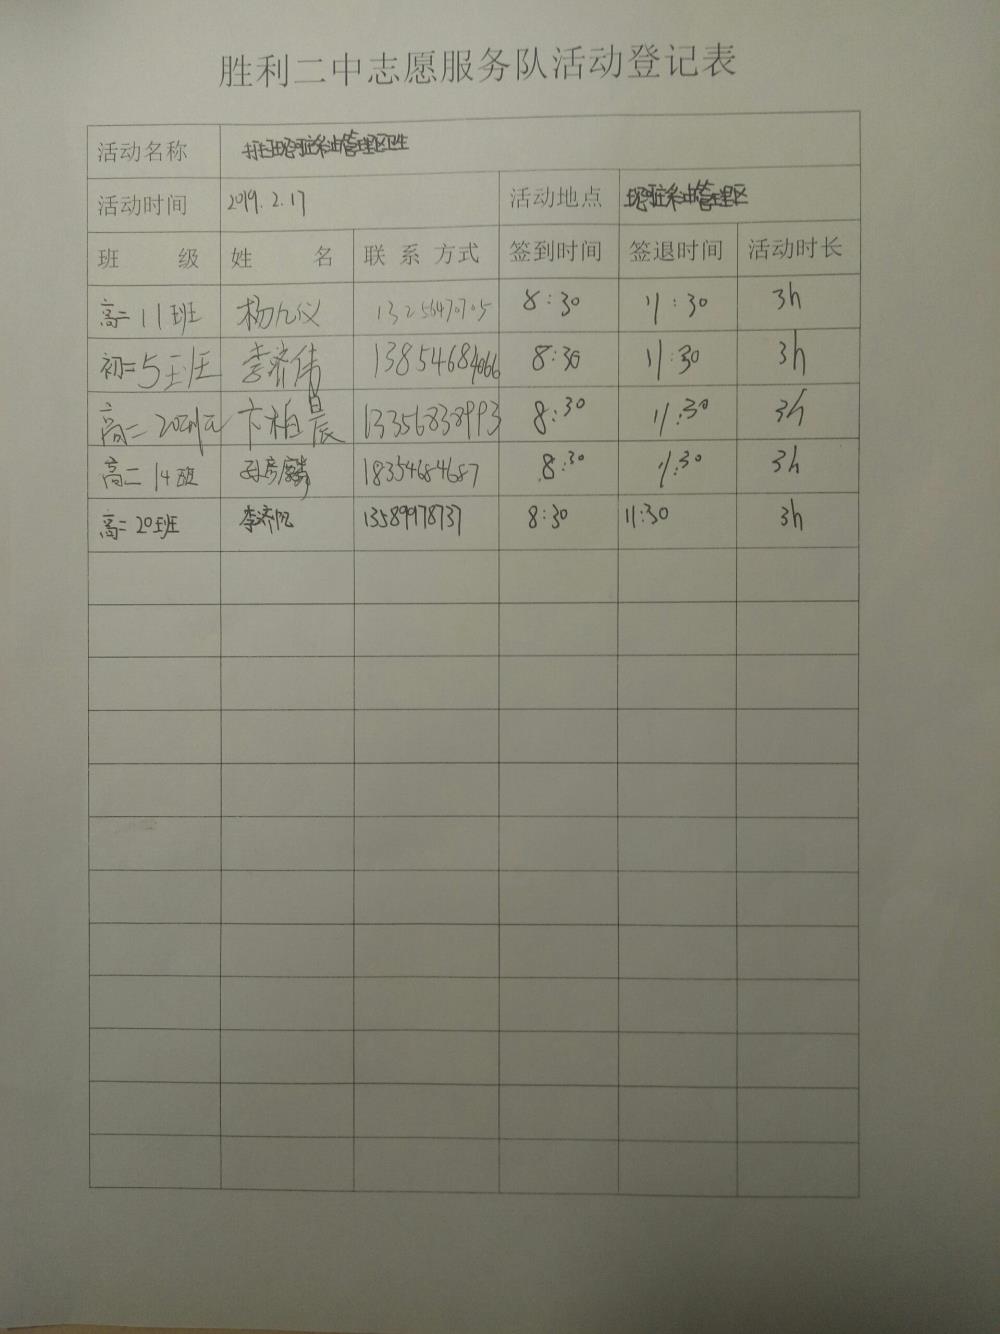 胜利二中志愿服务队活动登记表
活动名称 管理区卫生
活动时间 2019.2.17 活动地点 管理区
班 级 姓 名 联 系 方式 签到时间 签退时间 活动时长
高二 11班 杨 仪 13256470705 8:30 11:30 3h
初二5班 李济伟 13854684066 8:30 11:30 3h
高二 20班 卞柏晨 13356838993 8:30 11:30 3h
高二 14班 孙彦麟 18354684687 8:30 11:30 3h
高二 20班 李济 13589978737 8:30 11:30 3h